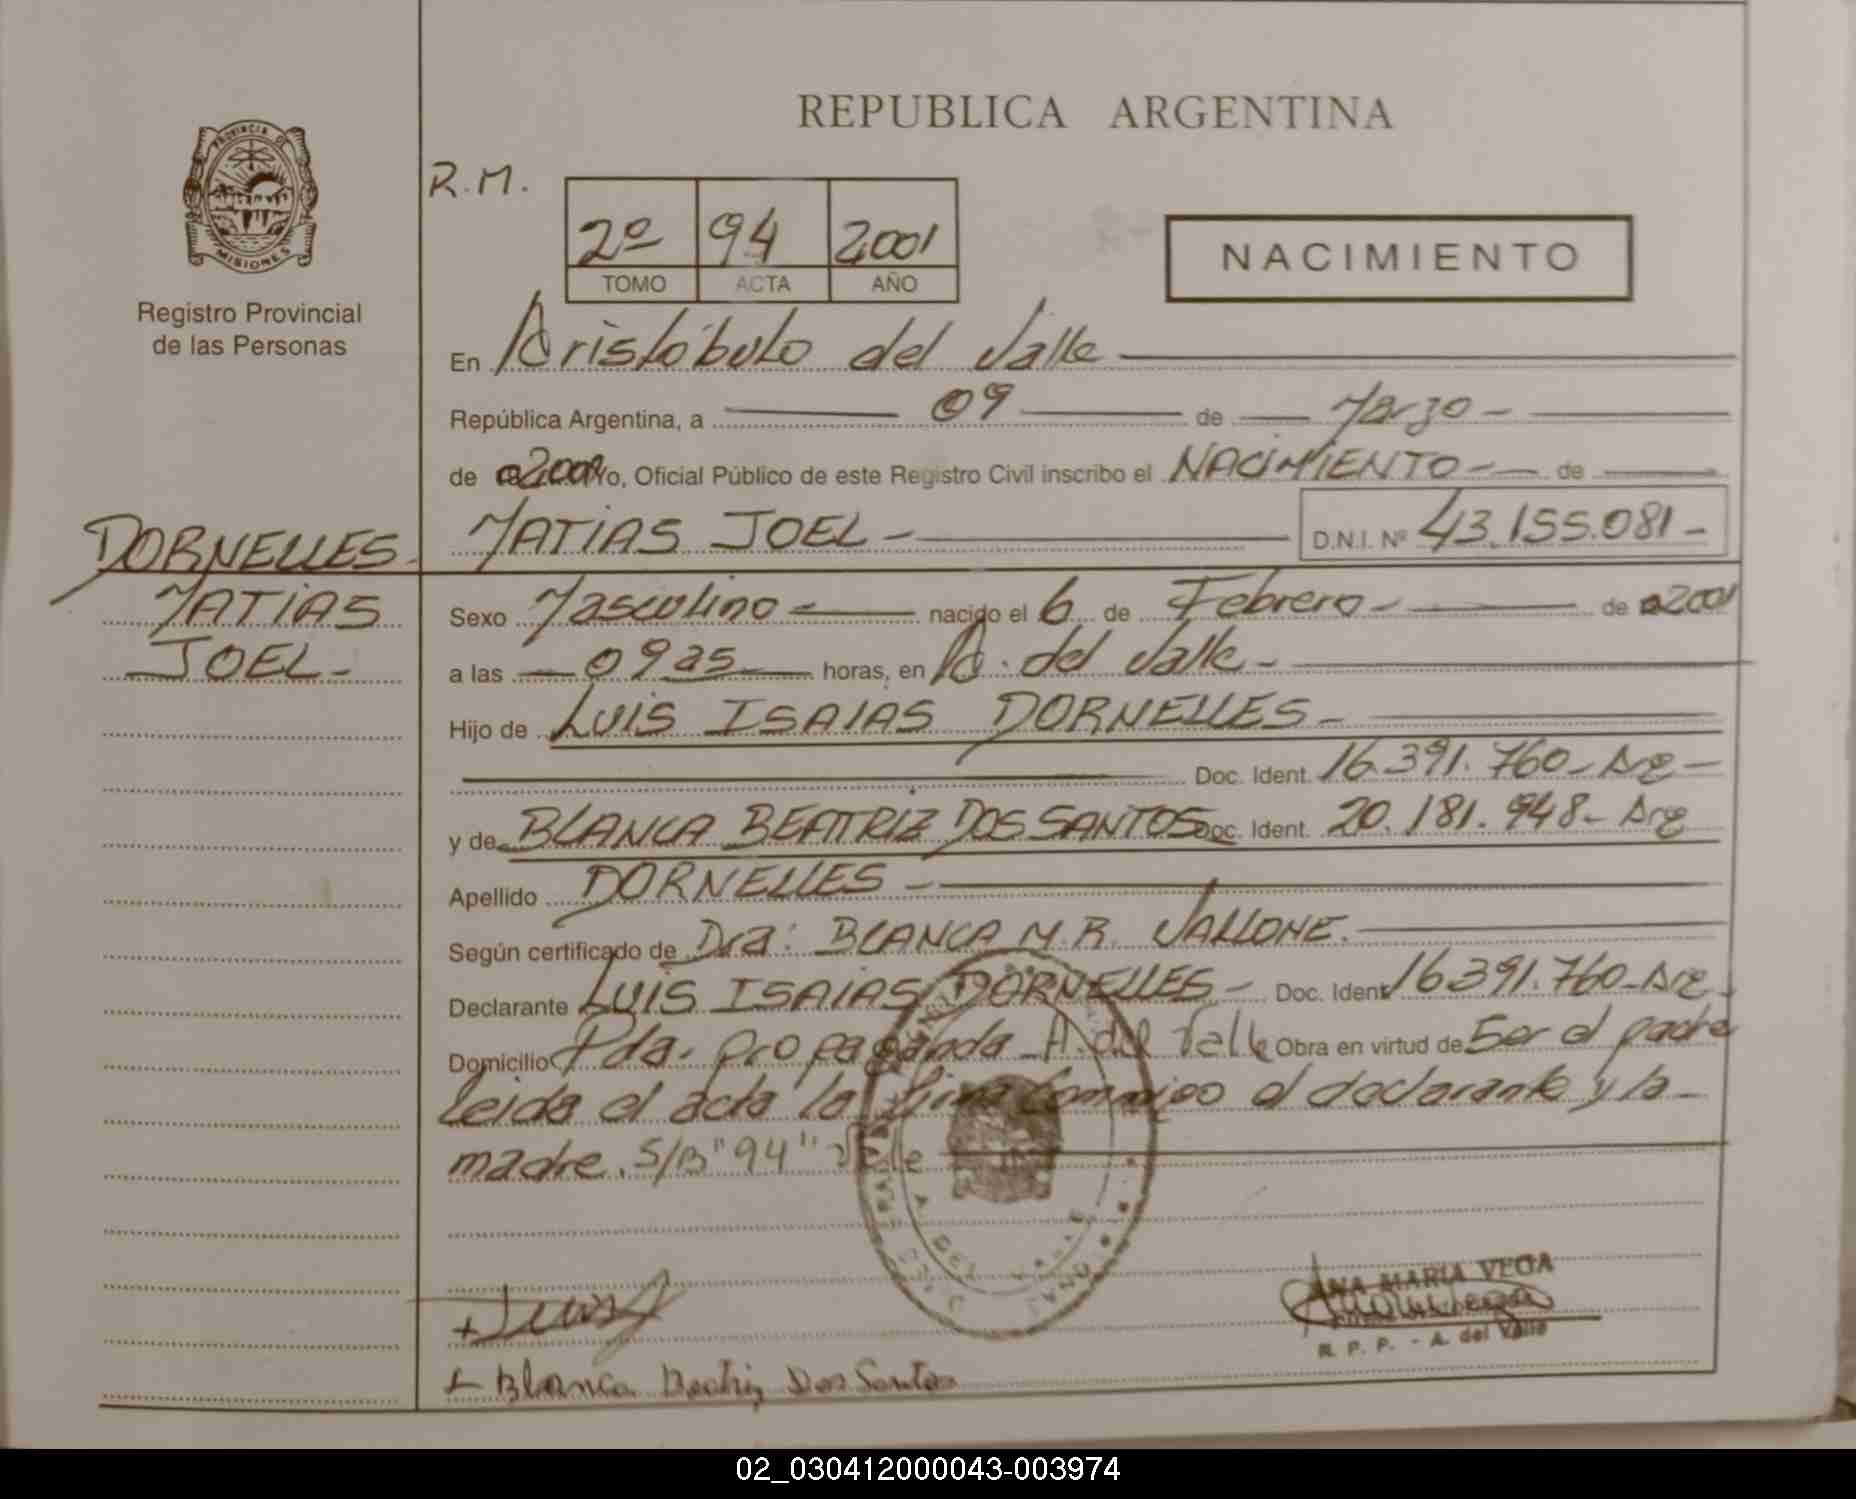 REPUBLICA ARGENTINA
PROVINCIA DE
MISIONES
Registro Provincial
de las Personas
R.M.
2º 94 2001
TOMO ACTA AÑO
NACIMIENTO
En Aristóbulo del Valle
República Argentina, a 09 de Marzo
de 2001 yo, Oficial Público de este Registro Civil inscribo el NACIMIENTO de
MATIAS JOEL D.N.I. Nº 43.155.081
DORNELLES
MATIAS
JOEL
Sexo Masculino nacido el 6 de Febrero de 2001
a las 09 25 horas, en A. del Valle
Hijo de LUIS ISAIAS DORNELLES
Doc. Ident. 16.391.760 Arg
y de BLANCA BEATRIZ DOS SANTOS Doc. Ident. 20.181.948 Arg
Apellido DORNELLES
Según certificado de Dra: BLANCA M.R. VALLONE.
Declarante LUIS ISAIAS DORNELLES Doc. Ident. 16391.760 Arg
Domicilio Pda. Propaganda A. del Valle Obra en virtud de Ser el padre
leida el acta la firma conmigo el declarante y la
madre. S/B "94" Vale
A. DEL VALLE
ANA MARIA VEGA
R. P. P. - A. del Valle
+ Blanca Beatriz Dos Santos
02_030412000043-003974